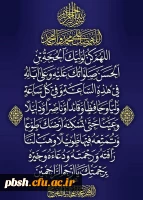 اللهم صل علی محمد و آل محمد
اللهم کن لولیک الحجة بن
الحسن صلواتک علیه و علی آبائه
فی هذه الساعة و فی کل ساعة
ولیا و حافظا و قائدا و ناصرا و دلیلا
و عینا حتی تسکنه ارضک طوعا
و تمتعه فیها طویلا و هب لنا
رأفته و رحمته و دعاءه و خیره
برحمتک یا ارحم الراحمین
pbsh.cfu.ac.ir